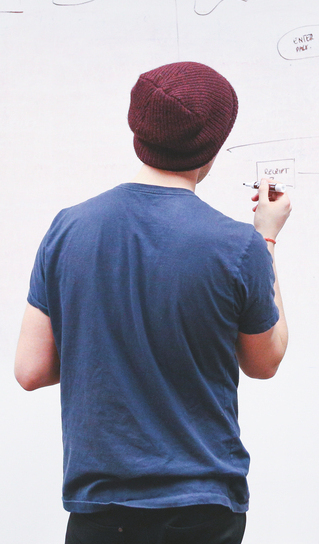 ENTER
PAGE.
RECEIPT